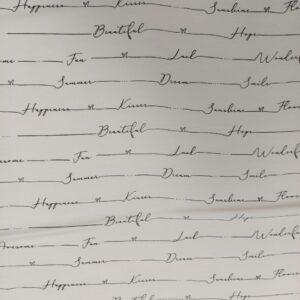 Happiness Kisses Sunshine Flow
Beautiful Hope
esome Fun Luck Wonderf
Summer Dream Smile
Happiness Kisses Sunshine Flow
Beautiful Hope
esome Fun Luck Wonderful
Summer Dream Smile
Happiness Kisses Sunshine Flow
Beautiful Hope
Awesome Fun Luck Wonderf
Summer Dream Smile
Happiness Kisses Sunshine Flowe